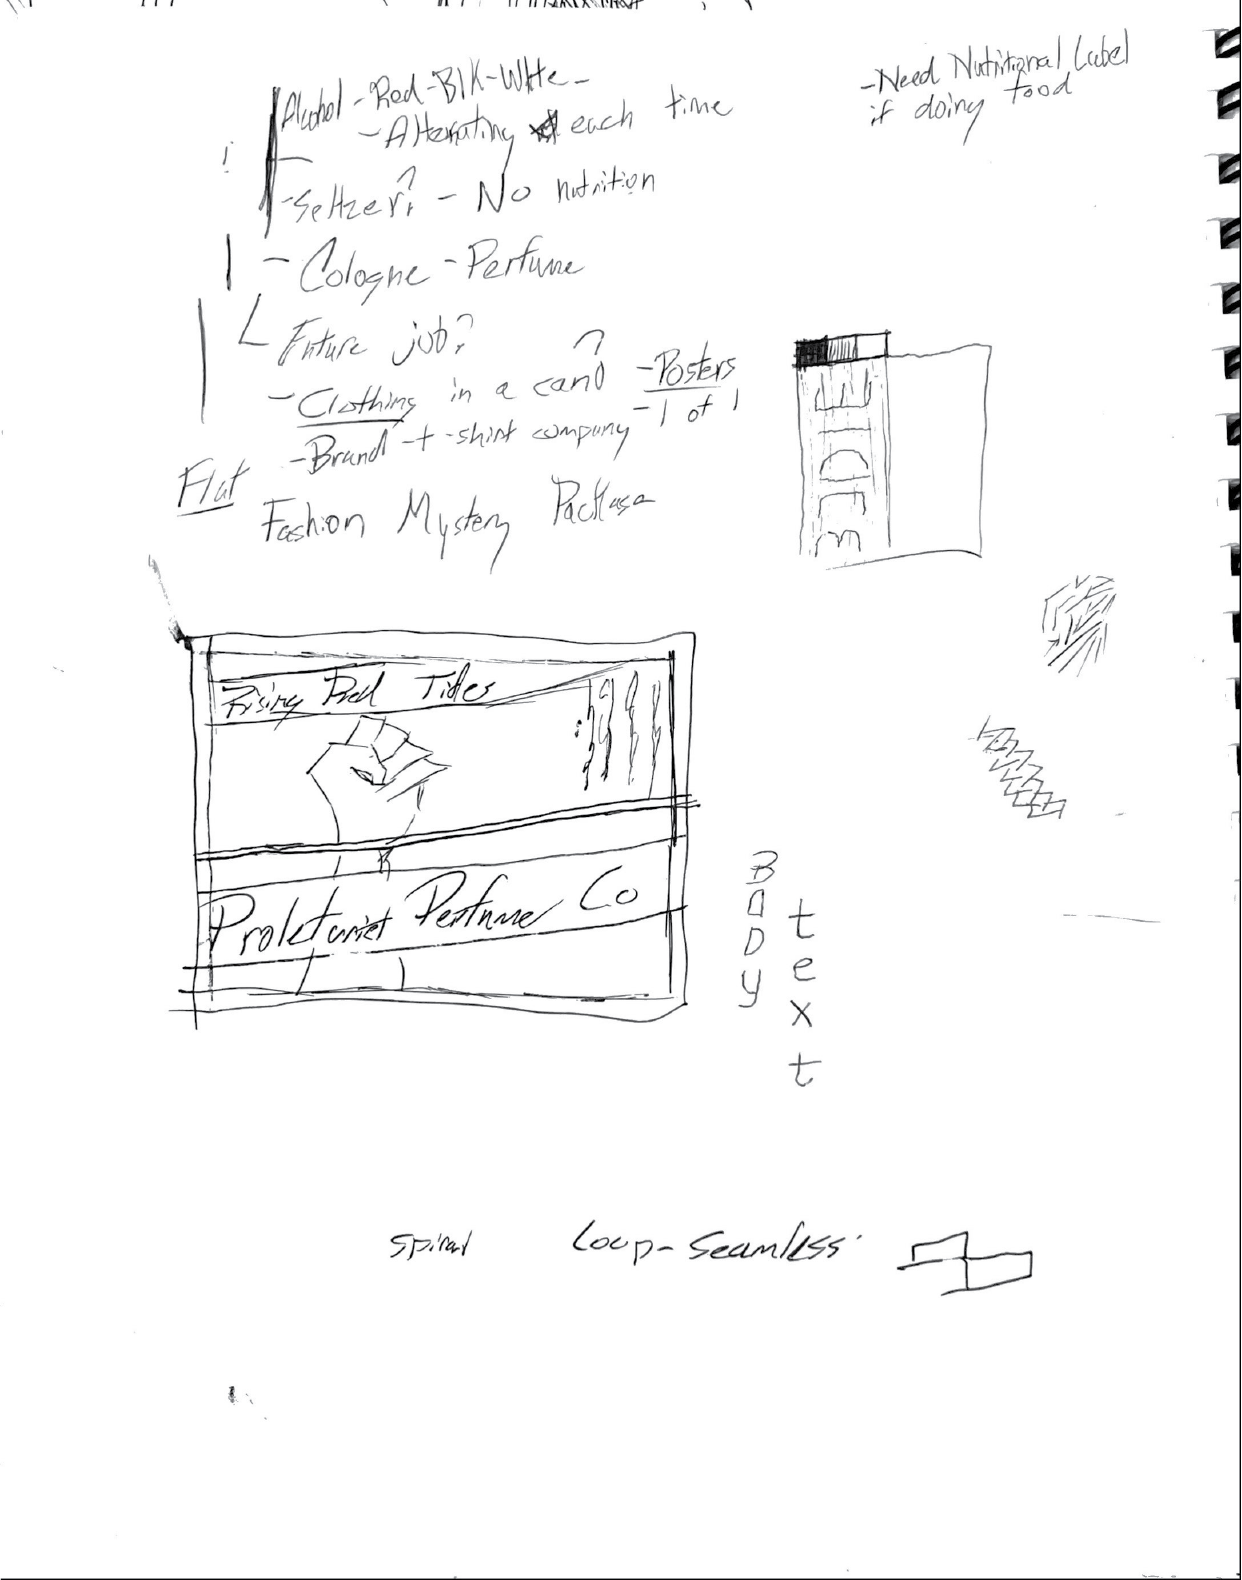 Alcohol - Red - Blk - White -
- Alternating each time
- Need Nutritional Label
if doing food
- Seltzer? - No nutrition
- Cologne - Perfume
Future job?
- Clothing in a can? - Posters
- 1 of 1
- Brand - t-shirt company
Flat
Fashion Mystery Package
Rising Red Tides
Proletariet Perfume Co
BODY
text
spiral
Loop - Seamless